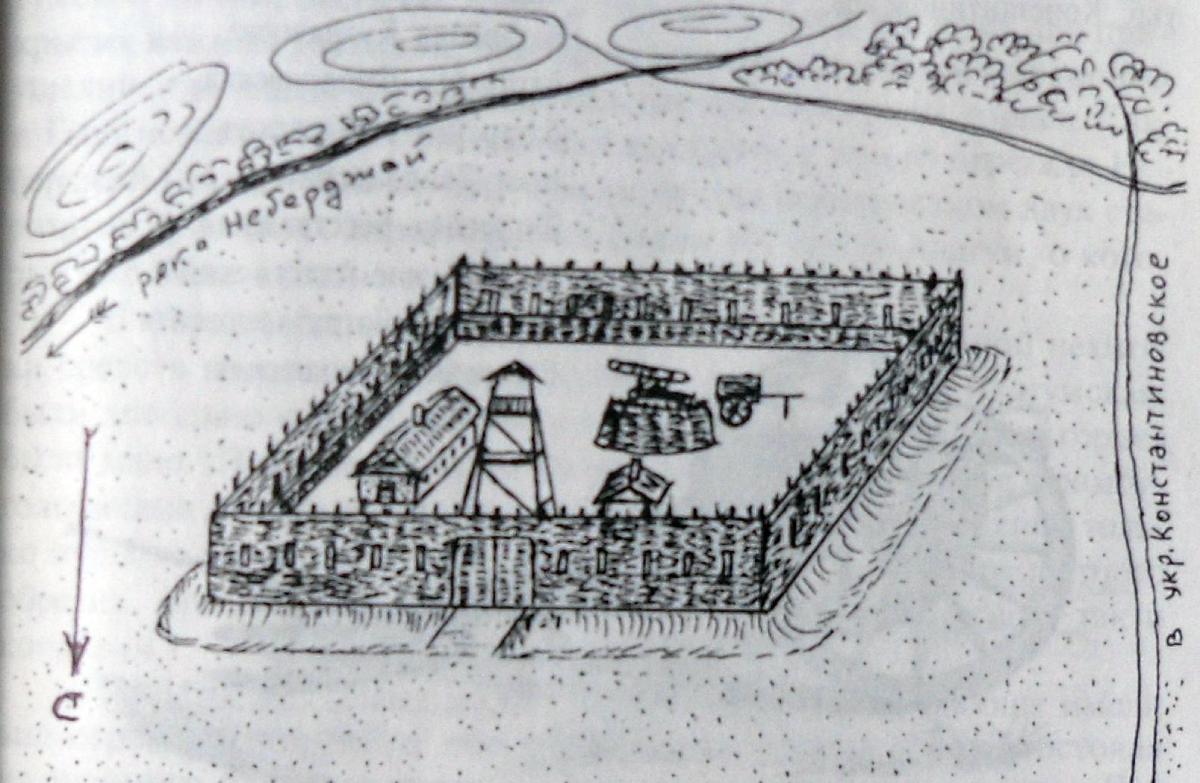 река Неберджай
в укр. Константиновское
С